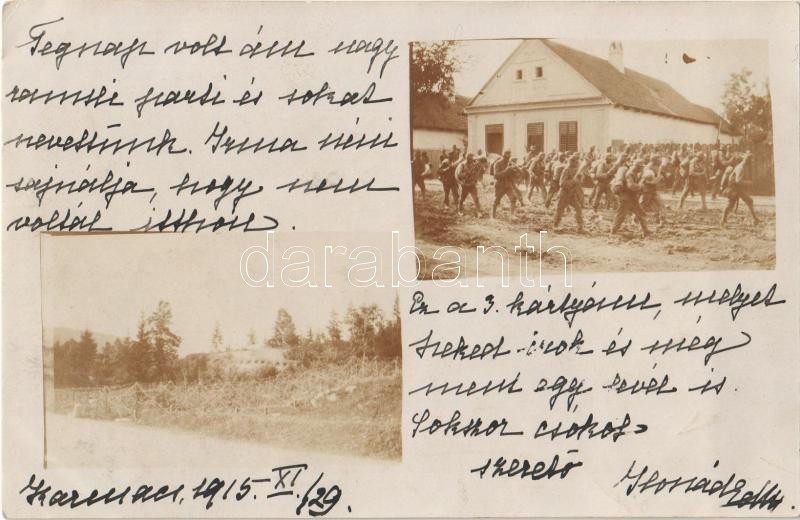 Tegnap volt ám nagy
ramsli parti és sokat
nevettünk. Irma néni
sajnálja, hogy nem
voltál itthon.
darabanth
Ez a 3. kártyám, melyet
Neked írok és még
ment egy levél is.
Sokszor csókol
szerető Ilonád
1915. XI/29.